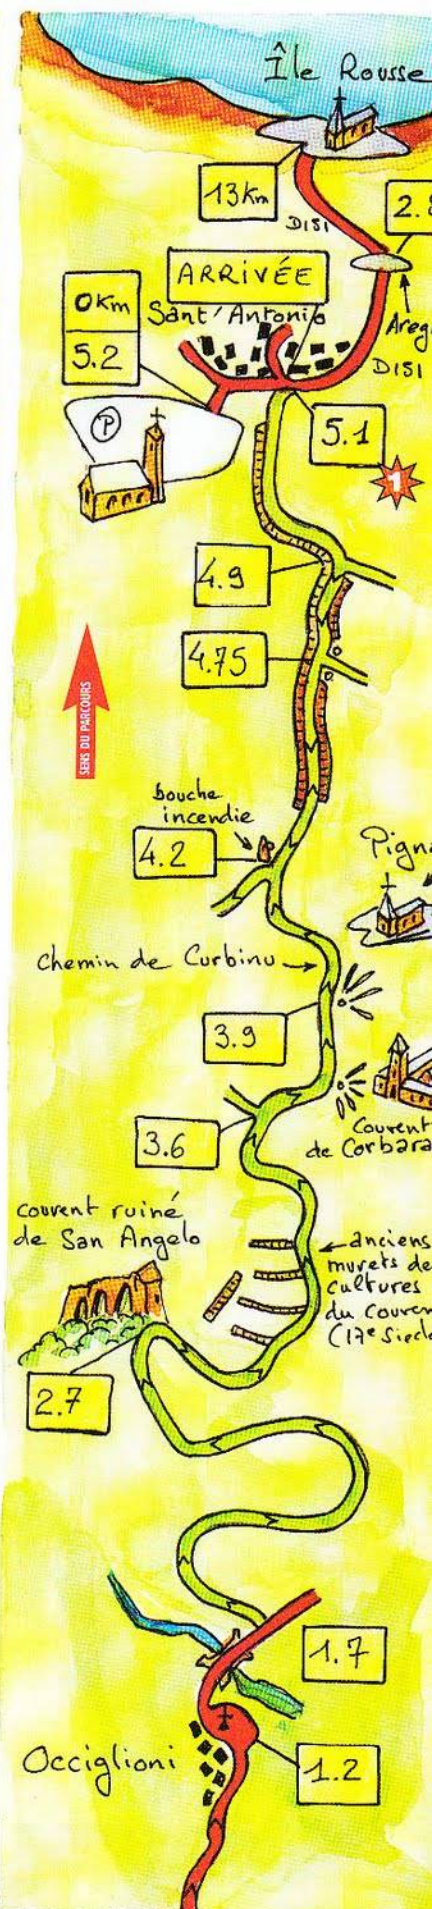 Île Rousse
13Km
D151
2.8
ARRIVÉE
0Km
Sant'Antonio
Areg
5.2
D151
P
5.1
1
4.9
4.75
SENS DU PARCOURS
bouche
incendie
4.2
Pigna
Chemin de Curbinu
3.9
3.6
Couvent
de Corbara
couvent ruiné
de San Angelo
anciens
murets de
cultures
du couven
(17e Siecle
2.7
1.7
Occiglioni
1.2